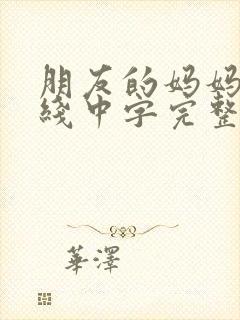 朋友的妈妈
线中字完整
華澤